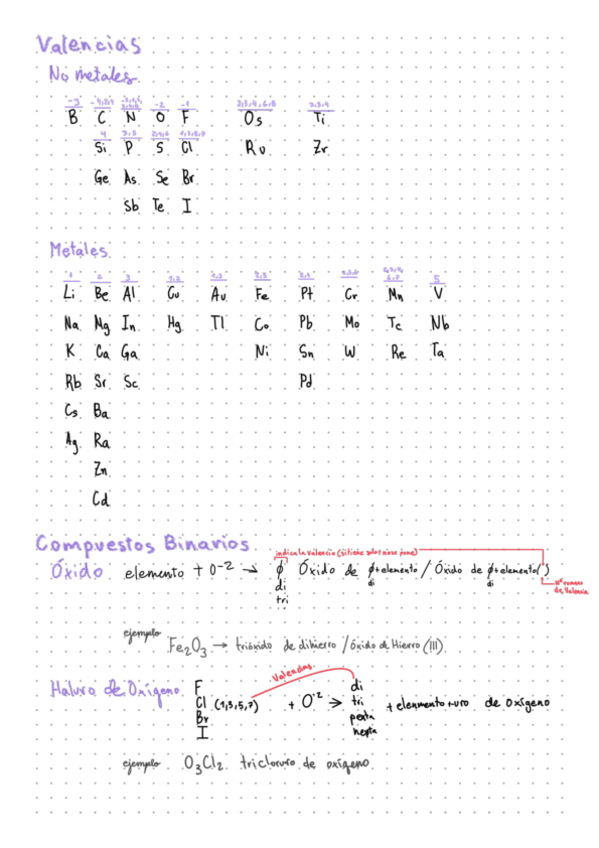 Valencias
No metales
-3 -2 -1 2,3,4,6,8 2,3,4
B C N O F Os Ti
4 3,5 2,4,6 1,3,5,7
Si P S Cl Ru Zr
Ge As Se Br
Sb Te I
Metales
1 2 3 1,2 1,3 2,3 2,4 2,3,6 5
Li Be Al Cu Au Fe Pt Cr Mn V
Na Mg In Hg Tl Co Pb Mo Tc Nb
K Ca Ga Ni Sn W Re Ta
Rb Sr Sc Pd
Cs Ba
Ag Ra
Zn
Cd
Compuestos Binarios
indica la valencia (si tiene solo una se pone)
Óxido elemento + O-2 → ϕ Óxido de ϕ+elemento / Óxido de ϕ+elemento( )
di di di
tri
Nº romano
de Valencia
ejemplo Fe2O3 → trióxido de dihierro / óxido de Hierro (III)
Valencias
Haluro de Oxígeno F di
Cl (1,3,5,7) + O-2 → tri + elenmento+uro de oxígeno
Br penta
I hepta
ejemplo O3Cl2 tricloruro de oxígeno